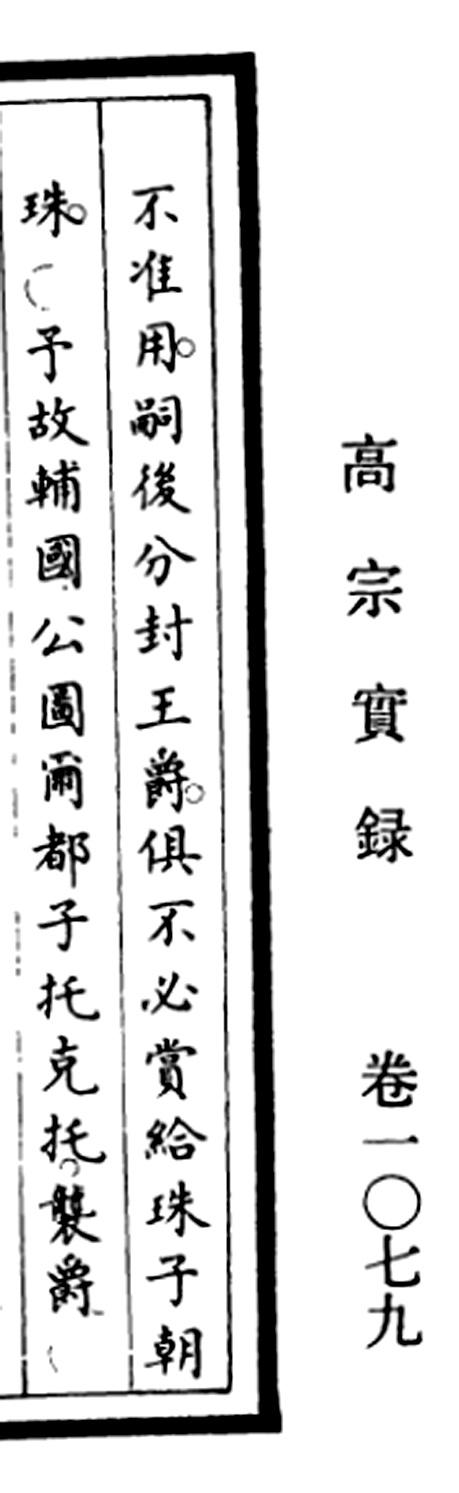 高宗實録 卷一〇七九
不准用。嗣後分封王爵。俱不必賞給珠子朝
珠。〇予故輔國公圖爾都子托克托。襲爵〇